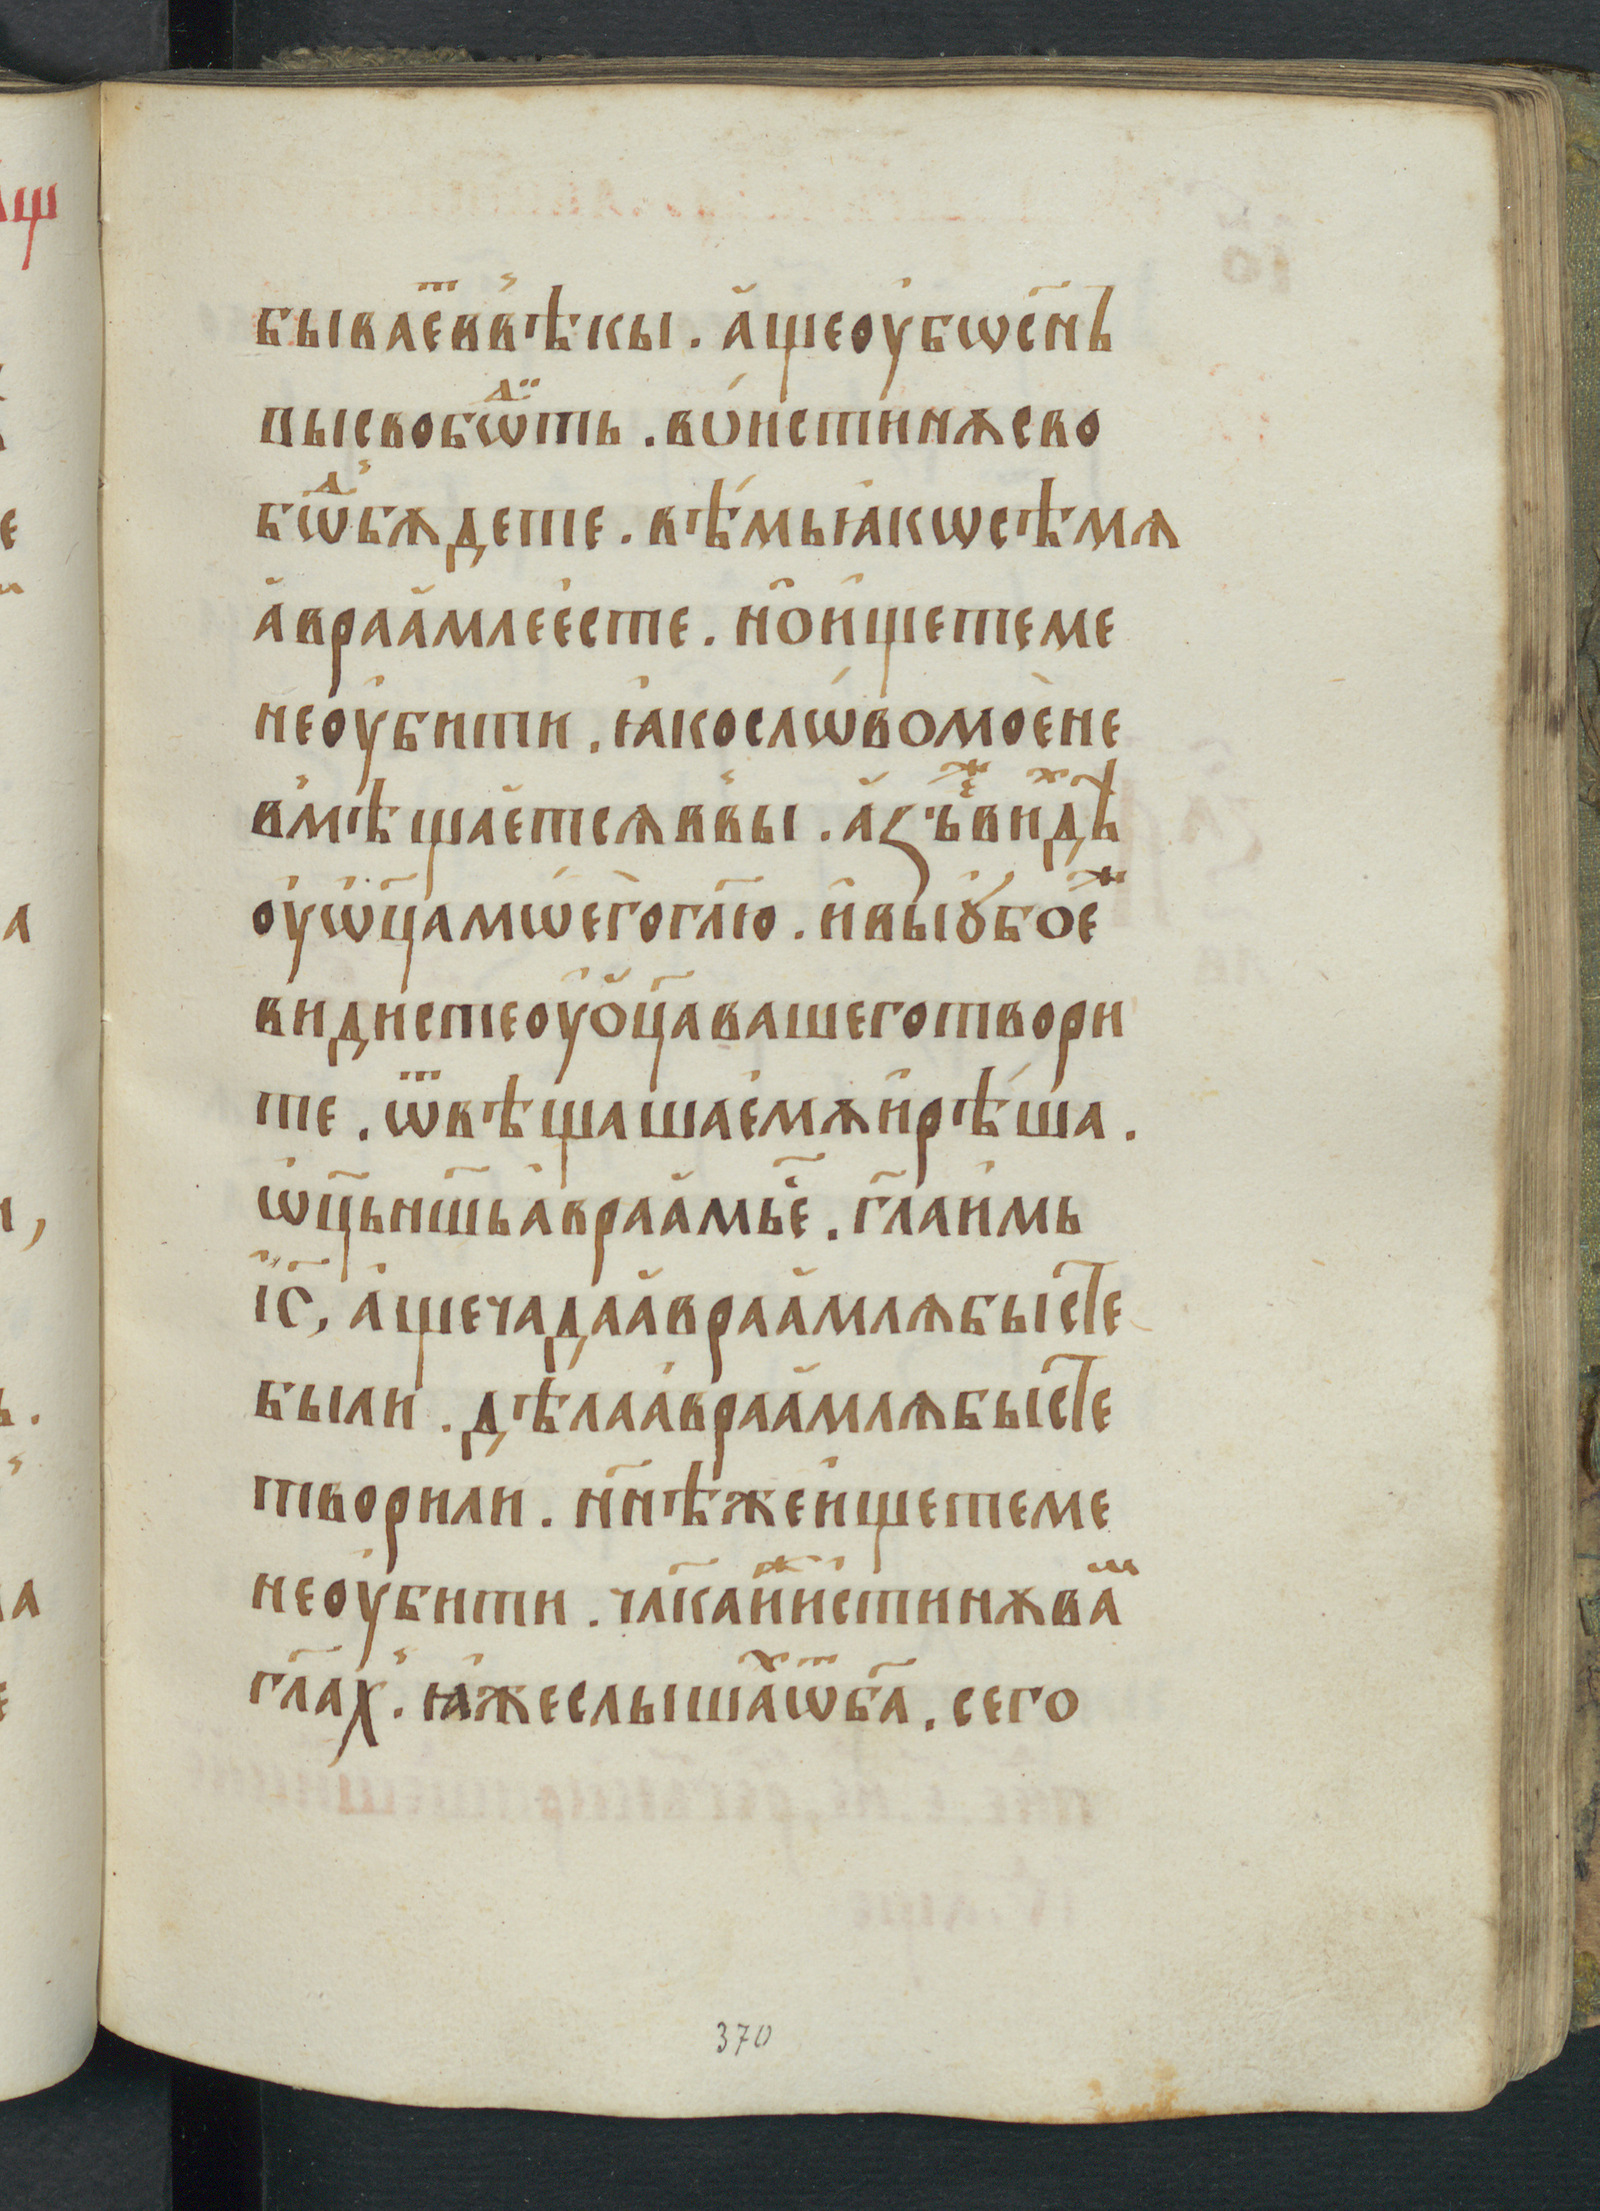 бываеⷮ в вѣкы . а҆ще оу҆бѡ сн҃ъ
вы свобѡⷣить . вои́стинѫ сво
бѡⷣ бѫдете . вѣ́мь ꙗ҆кѡ сѣмѧ
а҆враа҆мле е҆сте . но и҆щете ме
не оу҆бити . ꙗ҆ко слѡ́во моѐ не
вмѣщае҆тсѧ в вы . а҆ꙁъ е҆ⷤ видѣⷯ
оу҆ ѡ҆ц҃а мѡего̀ гл҃ю . и҆ вы ꙋ҆бо е҆ⷤ
видисте оу҆ ѻ҆ц҃а вашего твори
те . ѿвѣщаша е҆мѫ и҆ рѣ́ша .
ѡ҆ц҃ь нш҃ь а҆враа҆мь е҆ . гл҃а и҆мь
і҆с҃, а҆ще чада а҆враа҆млѧ бысте
были . дѣла а҆враа҆млѧ бысте
творили . нн҃ѣ же и҆щете ме
не оу҆бити . чл҃ка и҆ⷤ и҆стинѫ ваⷨ
гл҃аⷯ . ꙗ҆же слышаⷯ ѿ ба҃ . сего
370